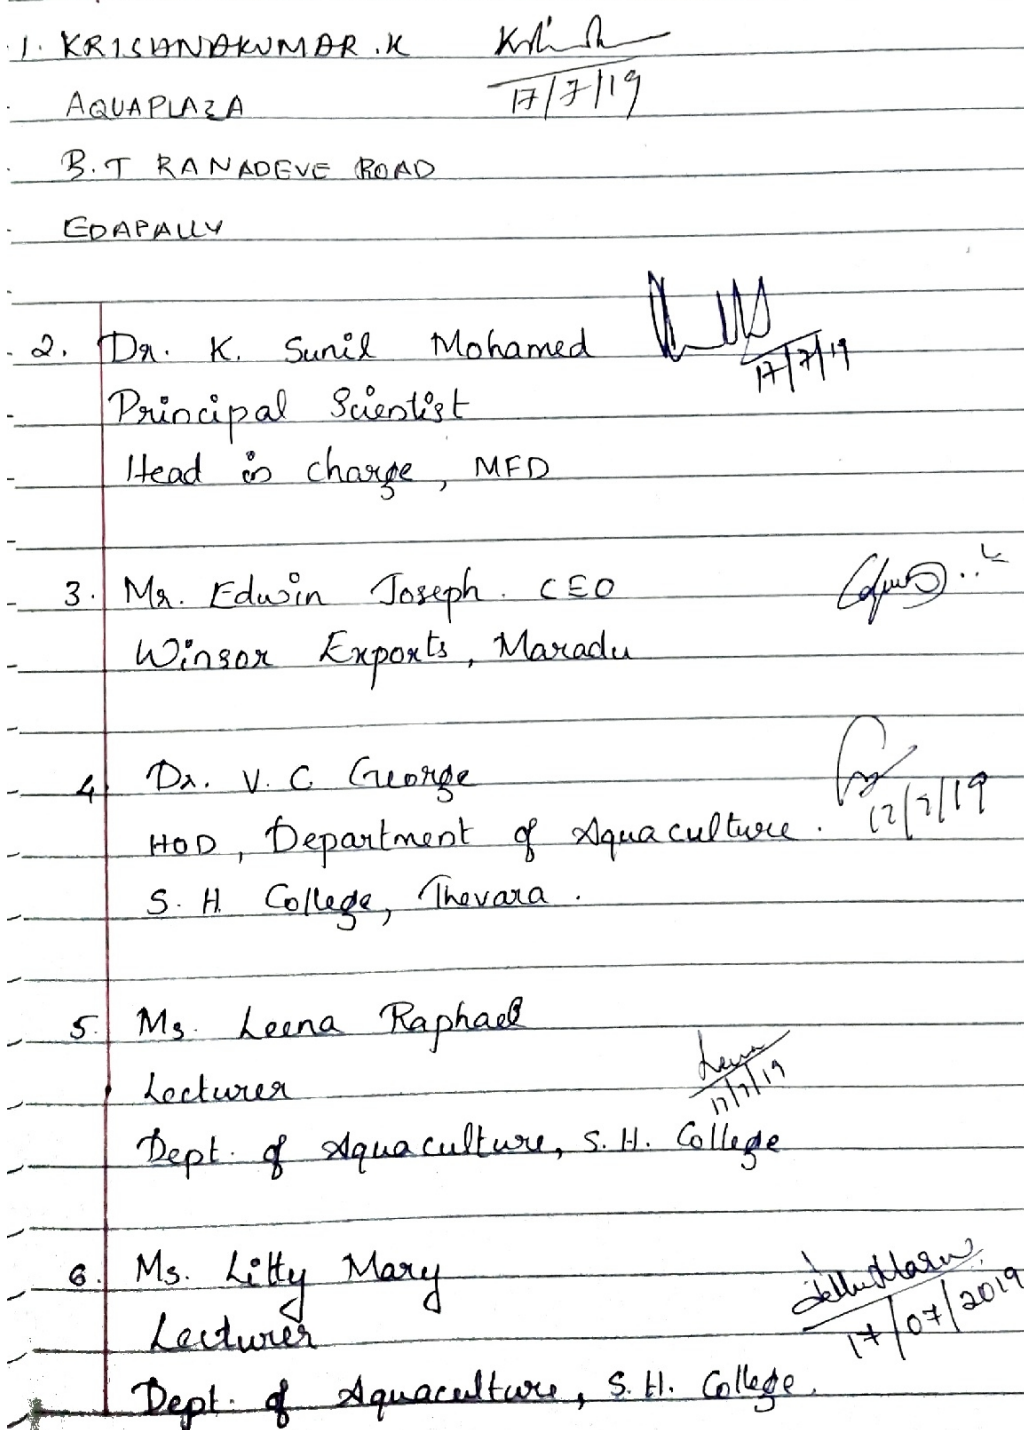 1. KRISHNAKUMAR .K
17/7/19
AQUAPLAZA
B.T RANADEVE ROAD
EDAPALLY
2. Dr. K. Sunil Mohamed
17/7/19
Principal Scientist
Head in charge, MFD
3. Mr. Edwin Joseph. CEO
Winsor Exports, Maradu
4. Dr. V. C. George
17/7/19
HOD, Department of Aquaculture.
S. H. College, Thevara.
5. Ms. Leena Raphael
Leena
17/7/19
Lecturer
Dept. of Aquaculture, S. H. College
6. Ms. Litty Mary
17/07/2019
Lecturer
Dept. of Aquaculture, S. H. College.